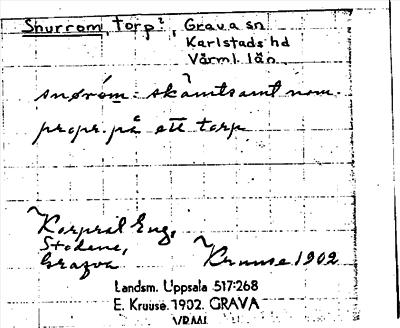 Snurrom, torp?, Grava sn
Karlstads hd
Värml. län
snøróm. skämtsamt nom.
propr. på ett torp
Korpral Eng,
Stodene,
Grava
Kruuse 1902
Landsm. Uppsala 517:268
E. Kruuse. 1902. GRAVA
VRML